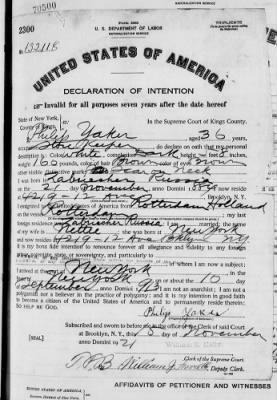 70500
2300
U. S. DEPARTMENT OF LABOR
TRIPLICATE
No. 132118
UNITED STATES OF AMERICA
DECLARATION OF INTENTION
Invalid for all purposes seven years after the date hereof
State of New York,
County of Kings,
In the Supreme Court of Kings County.
I, Philip Yaker, aged 36 years,
occupation Store Keeper, do declare on oath that my personal
description is: Color White, complexion Dark, height feet 2 inches,
weight 130 pounds, color of hair Brown, color of eyes Brown
other visible distinctive marks Scar on Neck
I was born in Russia
on the 21 day of November, anno Domini ; I now reside
at 4219-12 Ave, Brooklyn, N. Y.
I emigrated to the United States of America from Rotterdam Holland
on the vessel Rotterdam; my last
foreign residence was Russia; I am married; the name
of my wife is Nettie; she was born at New York
and now resides at 4219-12 Ave Bklyn NY
It is my bona fide intention to renounce forever all allegiance and fidelity to any foreign
prince, potentate, state, or sovereignty, and particularly to
of whom I am now a subject;
I arrived at the port of New York, in the
State of New York, on or about the 10 day
of September, anno Domini ; I am not an anarchist; I am not a
polygamist nor a believer in the practice of polygamy; and it is my intention in good faith
to become a citizen of the United States of America and to permanently reside therein:
SO HELP ME GOD.
Philip Yaker
Subscribed and sworn to before me in the office of the Clerk of said Court
at Brooklyn, N. Y., this day of November
anno Domini 1921
[SEAL]
Clerk of the Supreme Court.
By William J. Deputy Clerk.
AFFIDAVITS OF PETITIONER AND WITNESSES